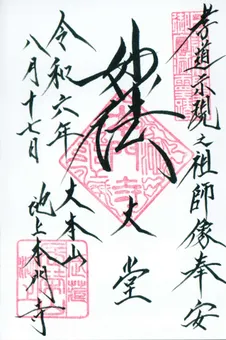 孝道示現之祖師像奉安
妙法
大堂
大本山
池上本門寺
令和六年
八月十七日